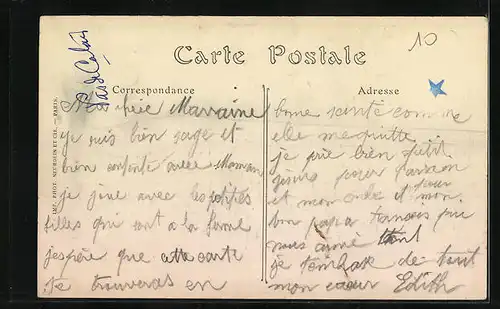 Carte Postale
10
Pas de Calais
Correspondance
Adresse
IMP. PHOT. NEURDEIN ET CIE. — PARIS
Marraine
je suis bien sage et
bien contente avec Maman
je joue avec les petites
filles qui sont a la ferme
j'espère que cette carte
te trouveras en
bonne santé comme
elle me quitte
je prie bien petit
jésus pour parrain
et mon oncle et pour mon
bon papa
nous aimé tant
je t'embrasse de tout
mon cœur Edith